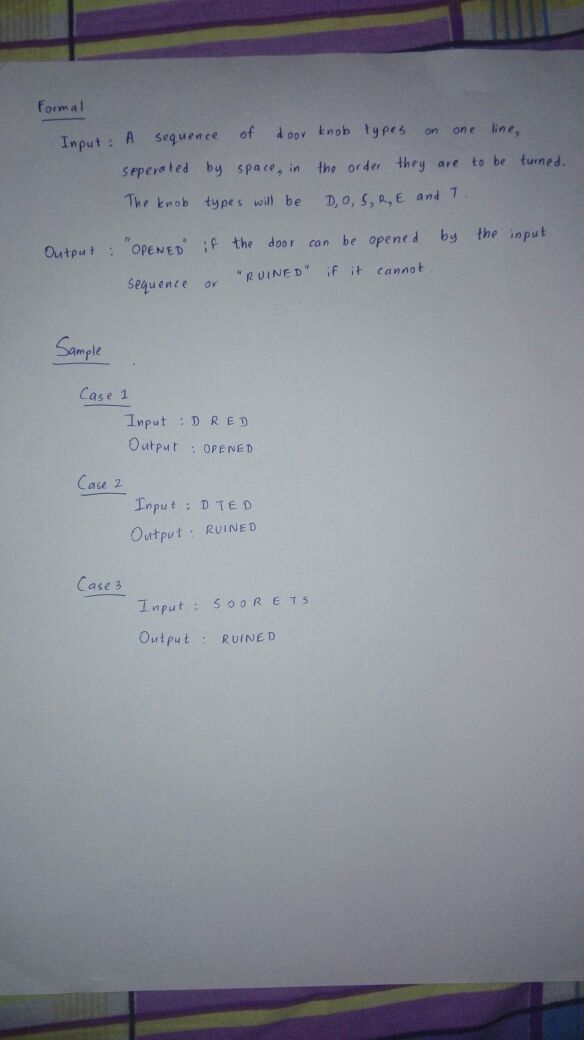 Formal
Input : A sequence of door knob types on one line,
seperated by space, in the order they are to be turned.
The knob types will be D, O, S, R, E and T.
Output : "OPENED" if the door can be opened by the input
sequence or "RUINED" if it cannot.
Sample
Case 1
Input : D R E D
Output : OPENED
Case 2
Input : D T E D
Output : RUINED
Case 3
Input : S O O R E T S
Output : RUINED